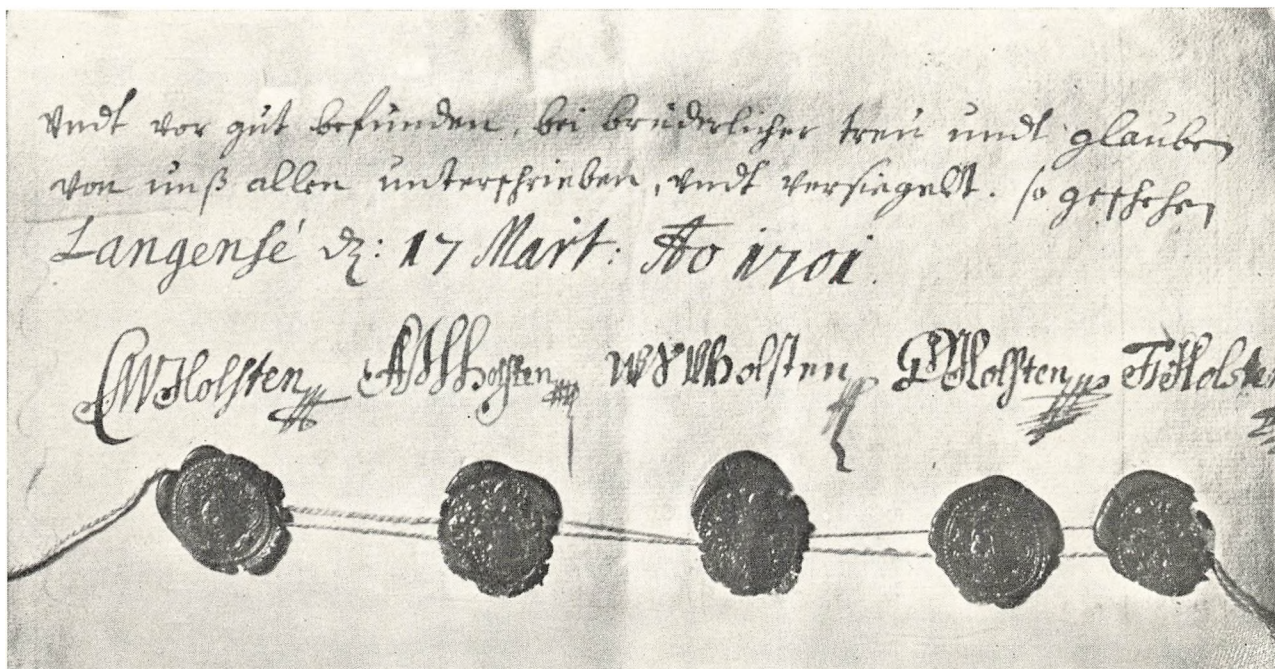 vndt vor gut befunden, bei brüderlicher treu undt glauben
von unß allen unterschrieben, vndt versiegelt. so geschehen
Langensé dz: 17 Mart: Ao 1701.
CWHolsten Holsten Holsten Holsten Holsten